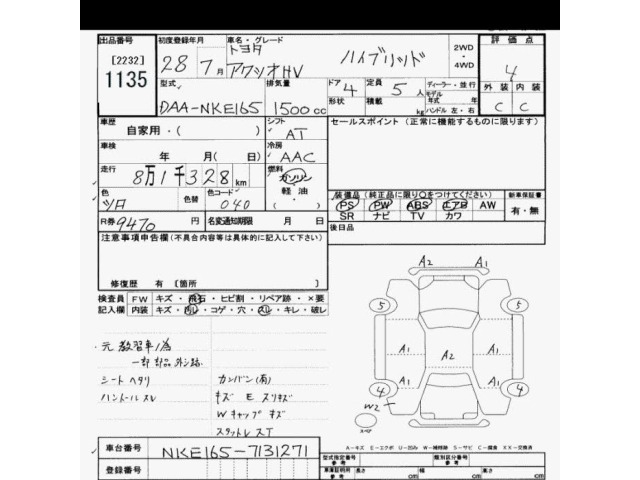 出品番号
[2232]
1135
初度登録年月
28年7月
車名・グレード
トヨタ
アクシオHV
ハイブリッド
2WD
・
4WD
評価点
4
外装 内装
C C
型式
DAA-NKE165
排気量
1500cc
ドア 4
形状
定員 5人
積載 kg
ディーラー・並行
モデル年式 年式
ハンドル 左・右
車歴
自家用・( )
シフト
AT
セールスポイント(正常に機能するものに限ります)
車検
年 月( 日)
冷房
AAC
走行
8万1千328km
燃料
ガソリン
軽油
・
色
シロ
色替
色コード
040
R券 9470円
名変通知期限 月 日
装備品(純正品に限り○をつけてください)
PS PW ABS エアB AW
SR ナビ TV カワ
新車保証書
有・無
後日品
注意事項申告欄(不具合内容等は具体的に記入して下さい)
修復歴 有 [箇所 ]
検査員 FW キズ・飛石・ヒビ割・リペア跡・×要
記入欄 内装 キズ・汚レ・コゲ・穴・スレ・キレ・破レ
・元教習車ノ為
一部部品外シ跡
シートヘタリ
ハンドルスレ
カンバン(有)
キズ E スリキズ
Wキャップキズ
A2 A1
5 5
A1 A2 A1
A1 A1
4 4
W2
スペア
A-キズ E-エクボ U-凹み W-補修跡 S-サビ C-腐食 XX-交換済
車台番号 NKE165-7131271
登録番号
型式指定番号
参考
類別区分番号
参考
車両証明用
参考
長さ cm
幅 cm
高さ cm